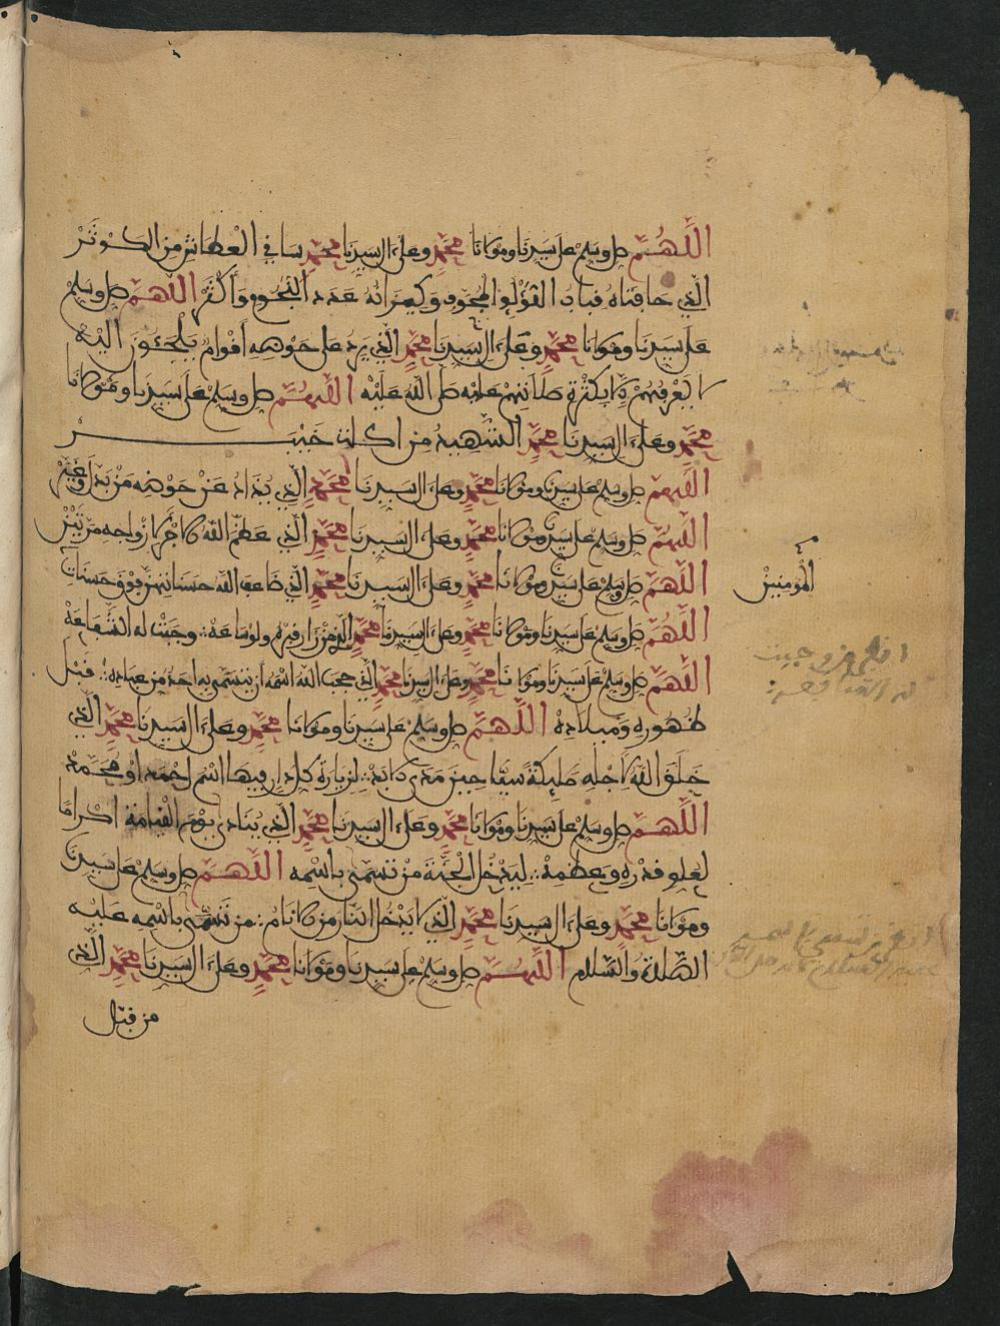 اللَّهُمَّ صل وسلم على سيدنا ومولانا محمد وعلى ءال سيدنا محمد ساقي العطاش من الكوثر
الذي حافتاه قباب اللؤلؤ المجوف وكيزانه عدد النجوم وأكثر اللهم صل وسلم
على سيدنا ومولانا محمد وعلى ءال سيدنا محمد الذي يرد على حوضه أقوام يلجئون إليه
لا يعرفهم إلا بكثرة صلاتهم عليه صلى الله عليه اللهم صل وسلم على سيدنا ومولانا
محمد وعلى ءال سيدنا محمد الشهيد من اكلت خيبر
اللهم صل وسلم على سيدنا ومولانا محمد وعلى ءال سيدنا محمد الذي يذاد عن حوضه من بدل وغير
اللهم صل وسلم على سيدنا ومولانا محمد وعلى ءال سيدنا محمد الذي عظم الله الاجر لازواجه مرتين
اللهم صل وسلم على سيدنا ومولانا محمد وعلى ءال سيدنا محمد الذي ضاعف الله حسناتهن فوق حسنات
المومنين
اللهم صل وسلم على سيدنا ومولانا محمد وعلى ءال سيدنا محمد الذي من زار قبره ولو ساعة وجبت له الشفاعة
اللهم صل وسلم على سيدنا ومولانا محمد وعلى ءال سيدنا محمد الذي حجب الله اسمه أن يتسمى به احد من عباده قبل
ظهوره وميلاده اللهم صل وسلم على سيدنا ومولانا محمد وعلى ءال سيدنا محمد الذي
خلق الله لأجله ملئكة سياحين مدى الابد لزيارة كل دار فيها اسم احمد او محمد
اللهم صل وسلم على سيدنا ومولانا محمد وعلى ءال سيدنا محمد الذي ينادى يوم القيامة اكراما
لعلو قدره وعظمه ليدخل الجنة من تسمى باسمه اللهم صل وسلم على سيدنا
ومولانا محمد وعلى ءال سيدنا محمد الذي لا يدخل النار من الانام من تسمى باسمه عليه
الصلاة والسلام اللهم صل وسلم على سيدنا ومولانا محمد وعلى ءال سيدنا محمد الذي
من قبل